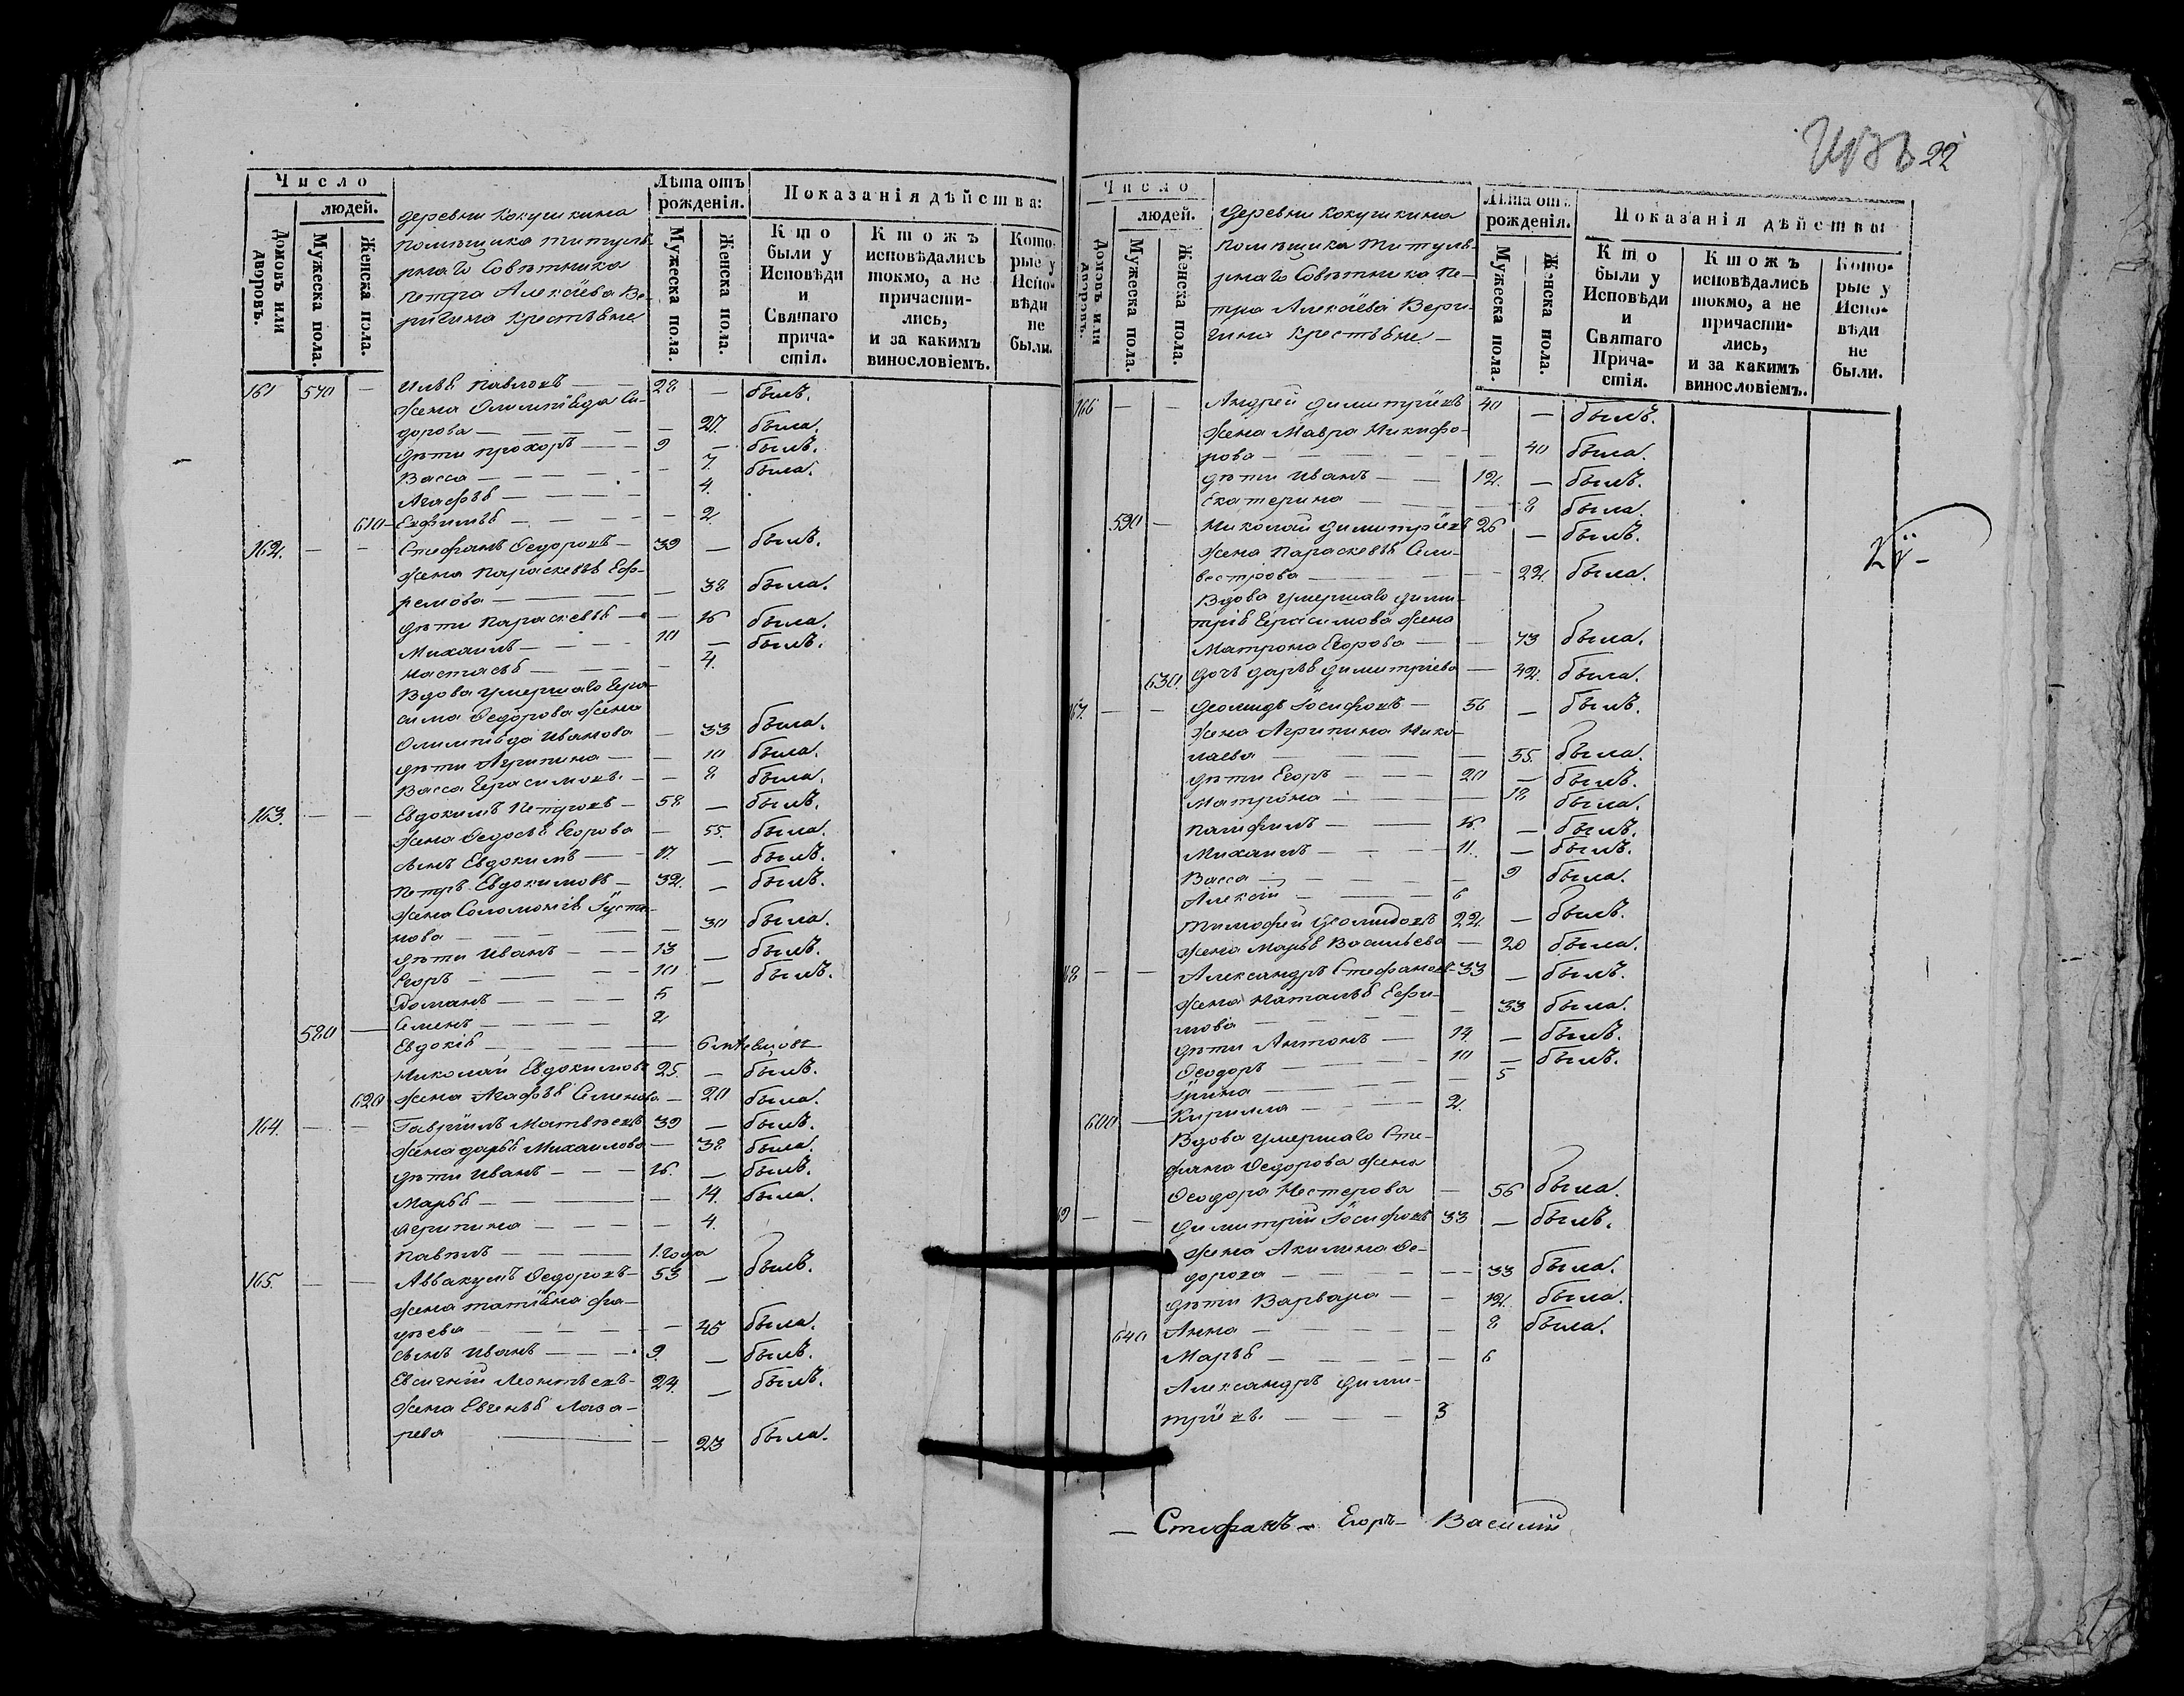 Число
людей.
Домовъ или дворовъ.
Мужеска пола.
Женска пола.
деревни Кокушкина
помѣщика титуляр-
рнаго Совѣтника
Петра Алексѣева Ве-
ригина крестьяне
Лѣта отъ
рожденія.
Мужеска пола.
Женска пола.
Показанія дѣйства:
Кто
были у
Исповѣди
и
Святаго
прича-
стія.
Ктожъ
исповѣдались
токмо, а не
причасти-
лись,
и за какимъ
винословіемъ.
Кото-
рые у
Испо-
вѣди
не
были.
161 570 — Илья Павловъ — 28 — былъ.
жена Олимпіяда Си-
дорова — — 27. была.
дѣти Прохоръ — 9 — былъ.
Васса — — 7. была.
Агафья — — 4.
610 — Ефимья — — 2
162. — — Стефанъ Ѳедоровъ — 39 — былъ.
жена Параскевья Еф-
ремова — — 38 была.
дѣти Параскевья — — 16 была.
Михаилъ — 10 — былъ.
Настасья — — 4.
Вдова умершаго Гера-
сима Ѳедорова жена
Олимпіяда Иванова — 33 была.
дѣти Агрипина — — 10 была.
Васса Герасимовы. — — 8 была.
163. — — Евдокимъ Петровъ — 58 — былъ.
жена Ѳедосья Егорова — 55. была.
сынъ Евдокимъ — 17. — былъ.
Петръ Евдокимовъ — 32. — былъ.
жена Соломонія Густи-
нова — — 30 была.
дѣти Иванъ — 13 — былъ.
Егоръ — 10 — былъ.
Романъ — 5
580 — Семенъ — 2
Евдокія — 6 мѣсяцовъ
Николай Евдокимовъ 25. — былъ.
620 жена Агафья Семенова — 20 была.
164. — — Гавріилъ Матвѣевъ 39 — былъ.
жена Дарья Михаилова — 38 была.
дѣти Иванъ — 16. — былъ.
Марья — — 14. была.
Агрипина — — 4.
Павелъ — 1. года
165. — — Аввакумъ Ѳедоровъ — 53 — былъ.
жена Татіяна Фа-
дѣева — — 45 была.
сынъ Иванъ — 9. — былъ.
Евсигній Леонтьевъ — 24. — былъ.
жена Евгенья Лаза-
рева — — 23 была.
22
Число
людей.
Домовъ или дворовъ.
Мужеска пола.
Женска пола.
деревни Кокушкина
помѣщика титуляр-
рнаго Совѣтника Пе-
тра Алексѣева Вери-
гина крестьяне —
Лѣта отъ
рожденія.
Мужеска пола.
Женска пола.
Показанія дѣйства
Кто
были у
Исповѣди
и
Святаго
Прича-
стія.
Ктожъ
исповѣдались
токмо, а не
причасти-
лись,
и за какимъ
винословіемъ.
Кото-
рые у
Испо-
вѣди
не
были.
166 — — Андрей Димитріевъ 40 — былъ.
жена Мавра Никифо-
рова — — 40 была.
дѣти Иванъ — 12. — былъ.
Екатерина — — 8 была.
590 — Николай Димитріевъ 26 — былъ.
жена Параскевья Сели-
вестрова — — 22. была.
Вдова умершаго Дими-
трія Герасимова жена
Матрона Егорова — — 73 была.
630. дочь Дарья Димитріева — 42. была.
67. — — Леонидъ Іосифовъ — 56 — былъ.
жена Агрипина Нико-
лаева — — 55. была.
дѣти Егоръ — 20 — былъ.
Матрона — — 18 была.
Памфилъ — 16. — былъ.
Михаилъ — 11. — былъ.
Васса — — 9 была.
Алексій — 6
Тимофей Леонидовъ 22. — былъ.
жена Марья Васильева — 20 была.
68 — — Александръ Стефановъ — 33 — былъ.
жена Наталья Ефи-
мова — — 33 была.
дѣти Антонъ — 14 — былъ.
Ѳеодоръ — 10 — былъ.
Ірина — — 5
600 — Кирилла — 2.
Вдова умершаго Сте-
фана Ѳедорова жена
Ѳеодора Нестерова — 56 была.
69 — — Димитрій Іосифовъ 33 — былъ.
жена Акилина Ѳе-
дорова — — 33 была.
дѣти Варвара — — 12. была.
640 Анна — — 8 была.
Марья — — 6
Александръ Дими-
тріевъ. — 3
— Стефанъ — Егоръ — Василій